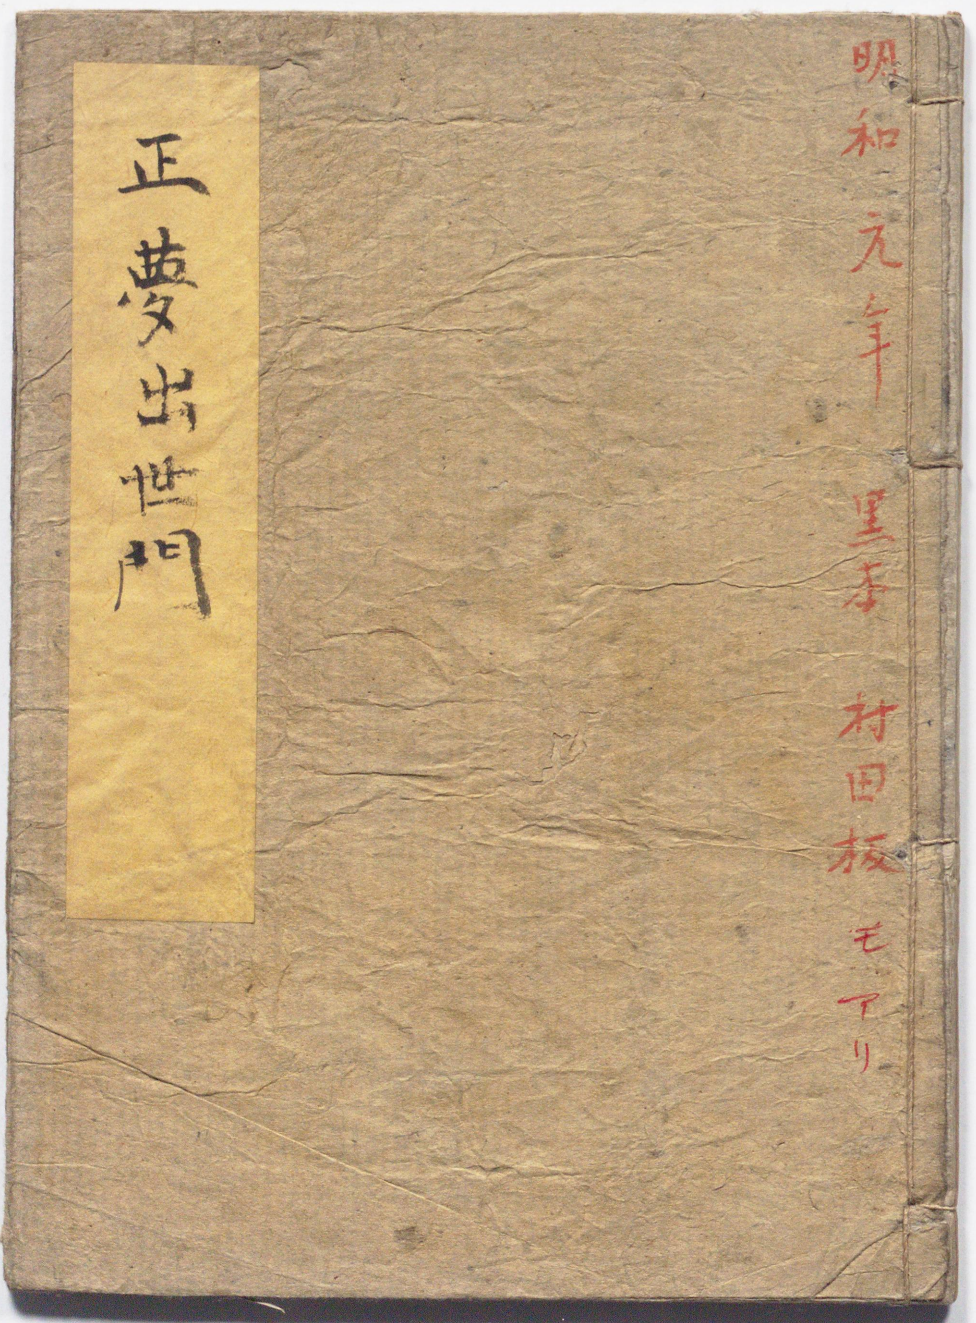 明和元年 黒本 村田板モアリ
正夢出世門